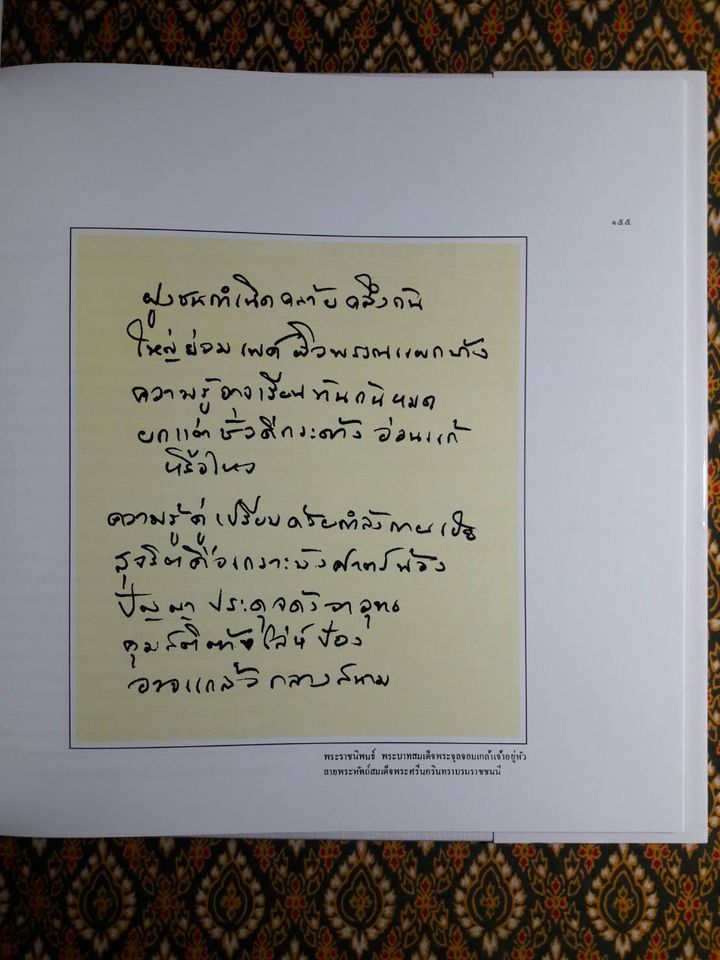 ๑๕๕
ฝูงชนกำเนิดคล้ายคลึงกัน
ใหญ่ย่อมเพศผิวพรรณแผกบ้าง
ความรู้อาจเรียนทันกันหมด
ยกแต่ชั่วดีกระด้าง อ่อนแก้
หรือไหว
ความรู้คู่เปรียบด้วยกำลังกาย เฮย
สุจริตคือเกราะบังศาสตร์พ้อง
ปัญญา ประดุจดังอาวุธ
คุมสติต่างโล่ห์ป้อง
อาจแกล้ว กลางสนาม
พระราชนิพนธ์ พระบาทสมเด็จพระจุลจอมเกล้าเจ้าอยู่หัว
ลายพระหัตถ์สมเด็จพระศรีนครินทราบรมราชชนนี